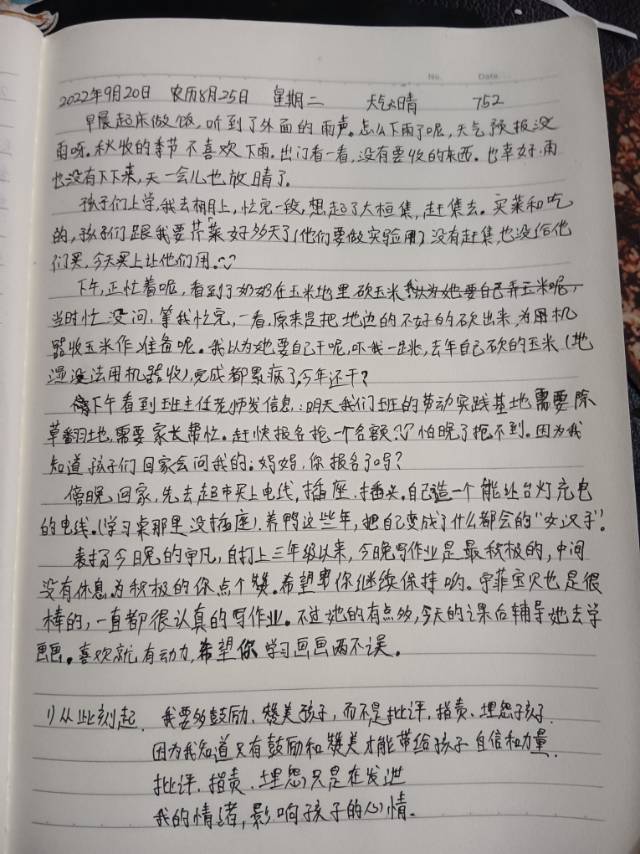 No. Date.
2022年9月20日 农历8月25日 星期二 天气晴 752
早晨起床做饭,听到了外面的雨声。怎么下雨了呢,天气预报没
雨呀。秋收的季节不喜欢下雨。出门看一看,没有要收的东西。也幸好,雨
也没有下下来,天一会儿也放晴了。
孩子们上学,我去棚上,忙完一段,想起了大桓集,赶集去。买菜和吃
的,孩子们跟我要芹菜好多天了(他们要做实验用)没有赶集,也没给他
们买,今天买上让他们用。
下午,正忙着呢,看到了奶奶在玉米地里砍玉米我以为她要自己弄玉米呢
当时忙没问,等我忙完,一看,原来是把地边的不好的砍出来,为用机
器收玉米作准备呢。我以为她要自己干呢,吓我一跳,去年自己砍的玉米(地
湿没法用机器收),完成都累病了,今年还干?
下午看到班主任老师发信息:明天我们班的劳动实践基地需要除
草翻地,需要家长帮忙。赶快报名抢一个名额 怕晚了抢不到。因为我
知道孩子们回家会问我的:妈妈,你报名了吗?
傍晚回家,先去超市买上电线,插座,插头。自己造一个能让台灯充电
的电线。(学习桌那里没插座),养鸭这些年,把自己变成了什么都会的“女汉子”。
表扬今日晚的宇凡,自打上三年级以来,今晚写作业是最积极的,中间
没有休息为积极的你点个赞。希望你继续保持哟。宇菲宝贝也是很
棒的,一直都很认真的写作业。不过她的有点多,今天的课后辅导她去学
画画。喜欢就有动力,希望你学习画画两不误。
1)从此刻起,我要多鼓励、赞美孩子,而不是批评、指责、埋怨孩子
因为我知道只有鼓励和赞美才能带给孩子自信和力量,
批评、指责、埋怨只是在发泄
我的情绪,影响孩子的心情。